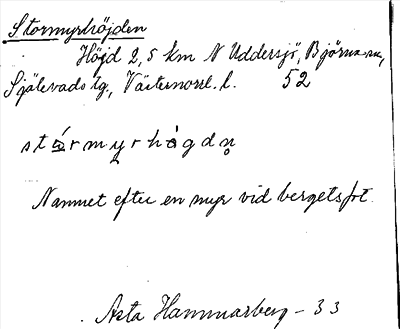 Stormyrhöjden
Höjd 2,5 km N Uddersjö, Björna sn,
Själevads tg., Västernorrl. l. 52
stórmyrhógdn̥
Namnet efter en myr vid bergets fot.
Asta Hammarberg - 33